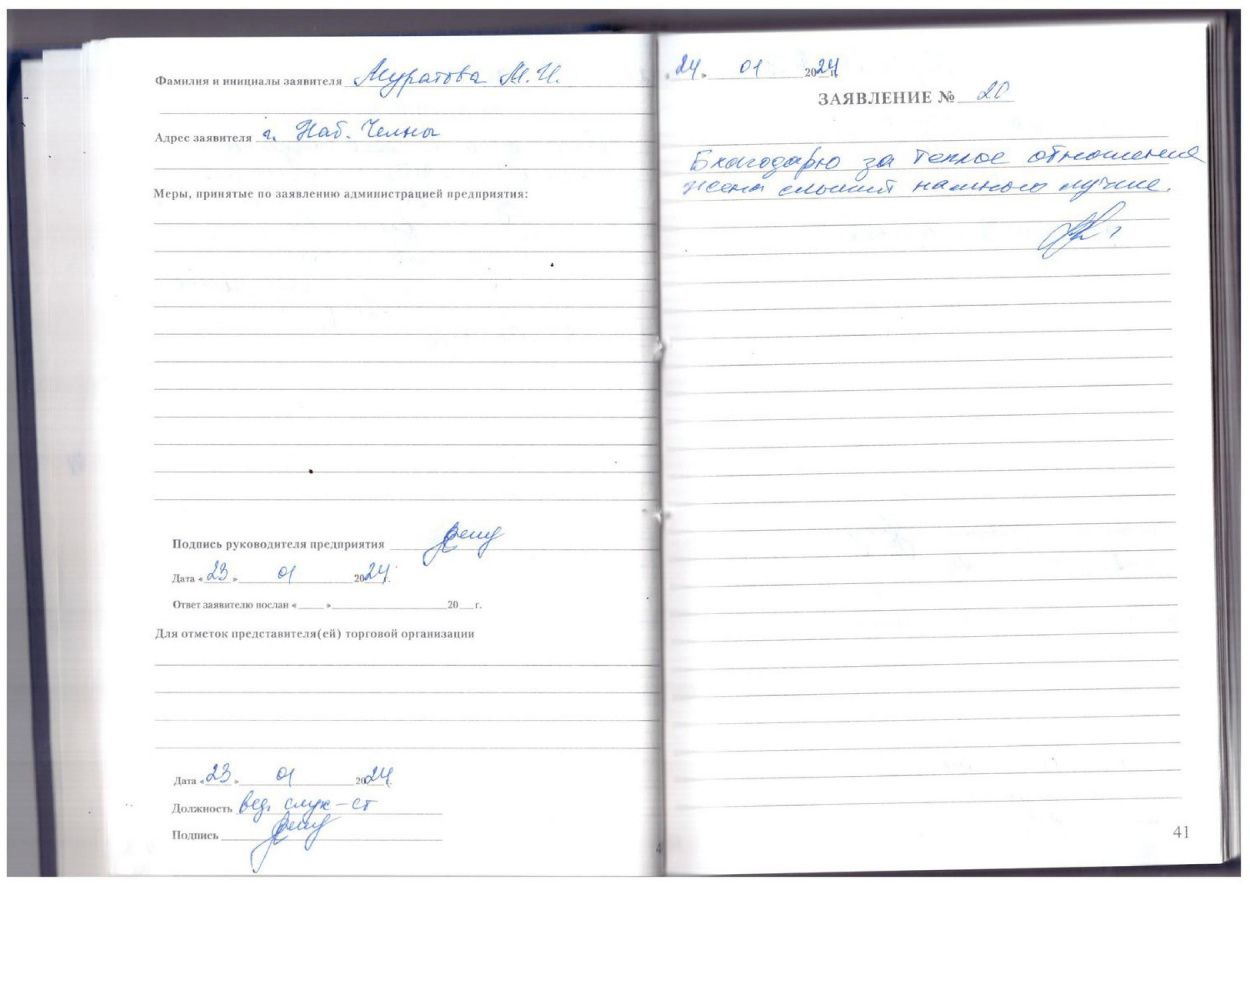 Фамилия и инициалы заявителя Муратова М.И.
Адрес заявителя г. Наб. Челны
Меры, принятые по заявлению администрацией предприятия:
Подпись руководителя предприятия
Дата «23» 01 2024г.
Ответ заявителю послан «____» ____ 20__г.
Для отметок представителя(ей) торговой организации
Дата «23» 01 2024
Должность вед. слух-ст
Подпись
«24» 01 2024г.
ЗАЯВЛЕНИЕ № 20
Благодарю за теплое отношения
жена слышит намного лучше.
41